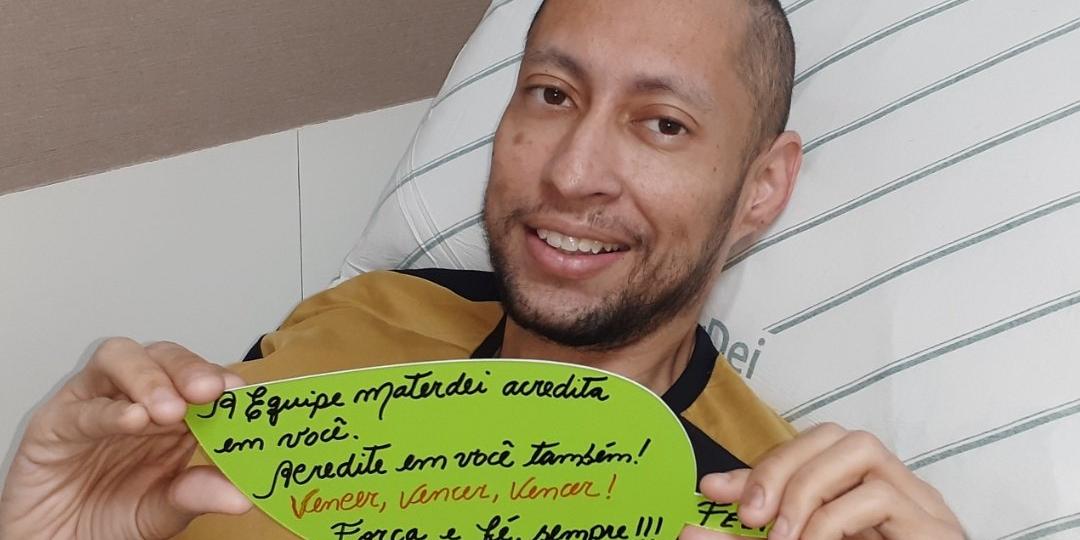 A Equipe Materdei acredita
em você.
Acredite em você também!
Vencer, Vencer, Vencer!
Força e fé, sempre!!!
Dei